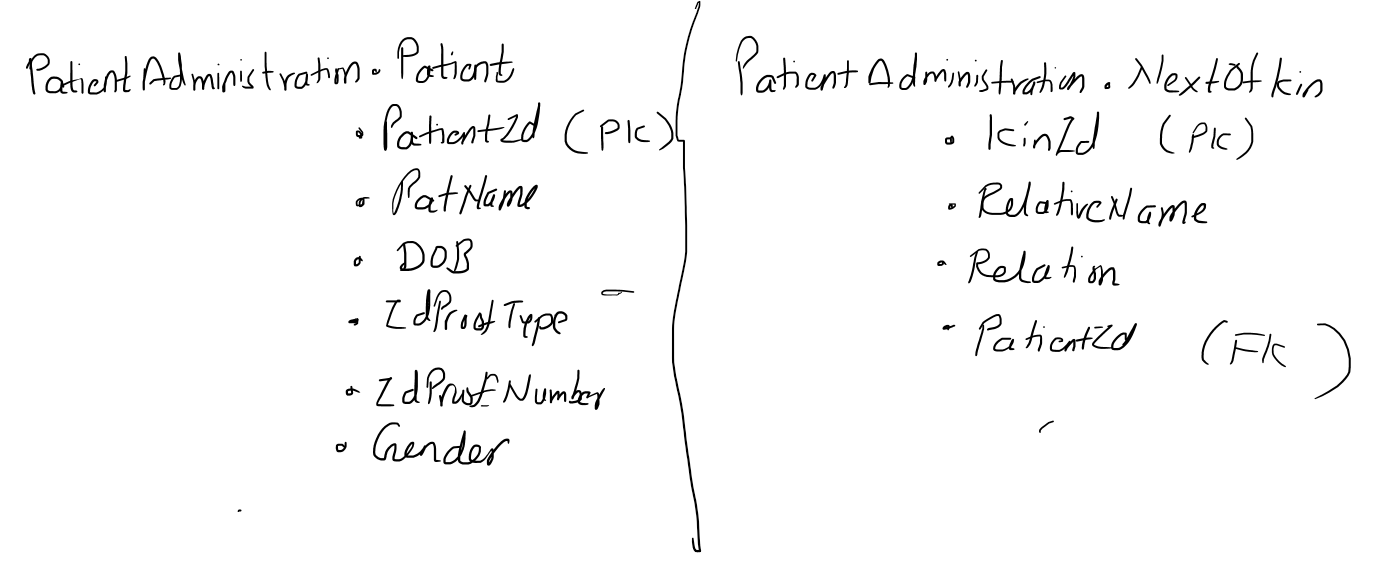 PatientAdministration.Patient
• PatientId (PK)
• PatName
• DOB
• IdProofType
• IdProofNumber
• Gender
PatientAdministration.NextOfkin
• KinId (PK)
• RelativeName
• Relation
• PatientId (FK)